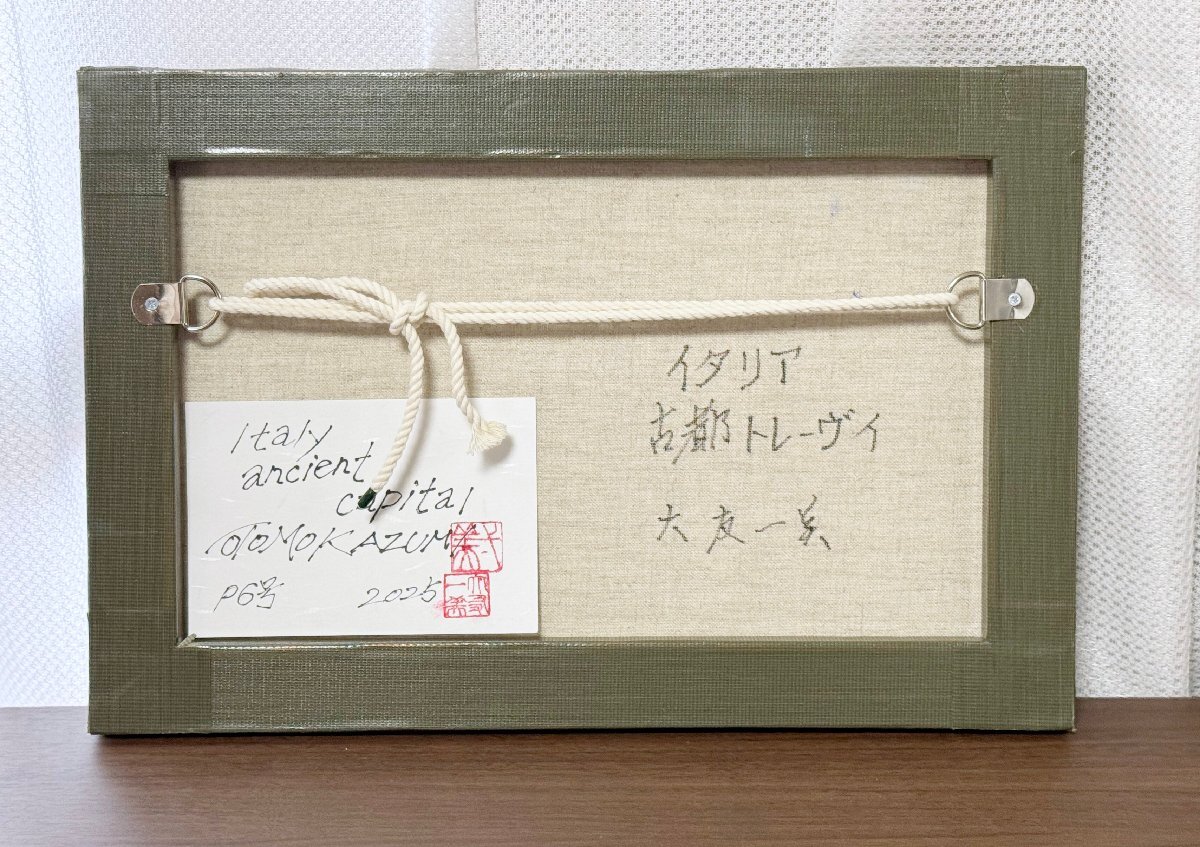 Italy
ancient
capital
OTOMOKAZUMI
P6号 2025
イタリア
古都トレーヴィ
大友一